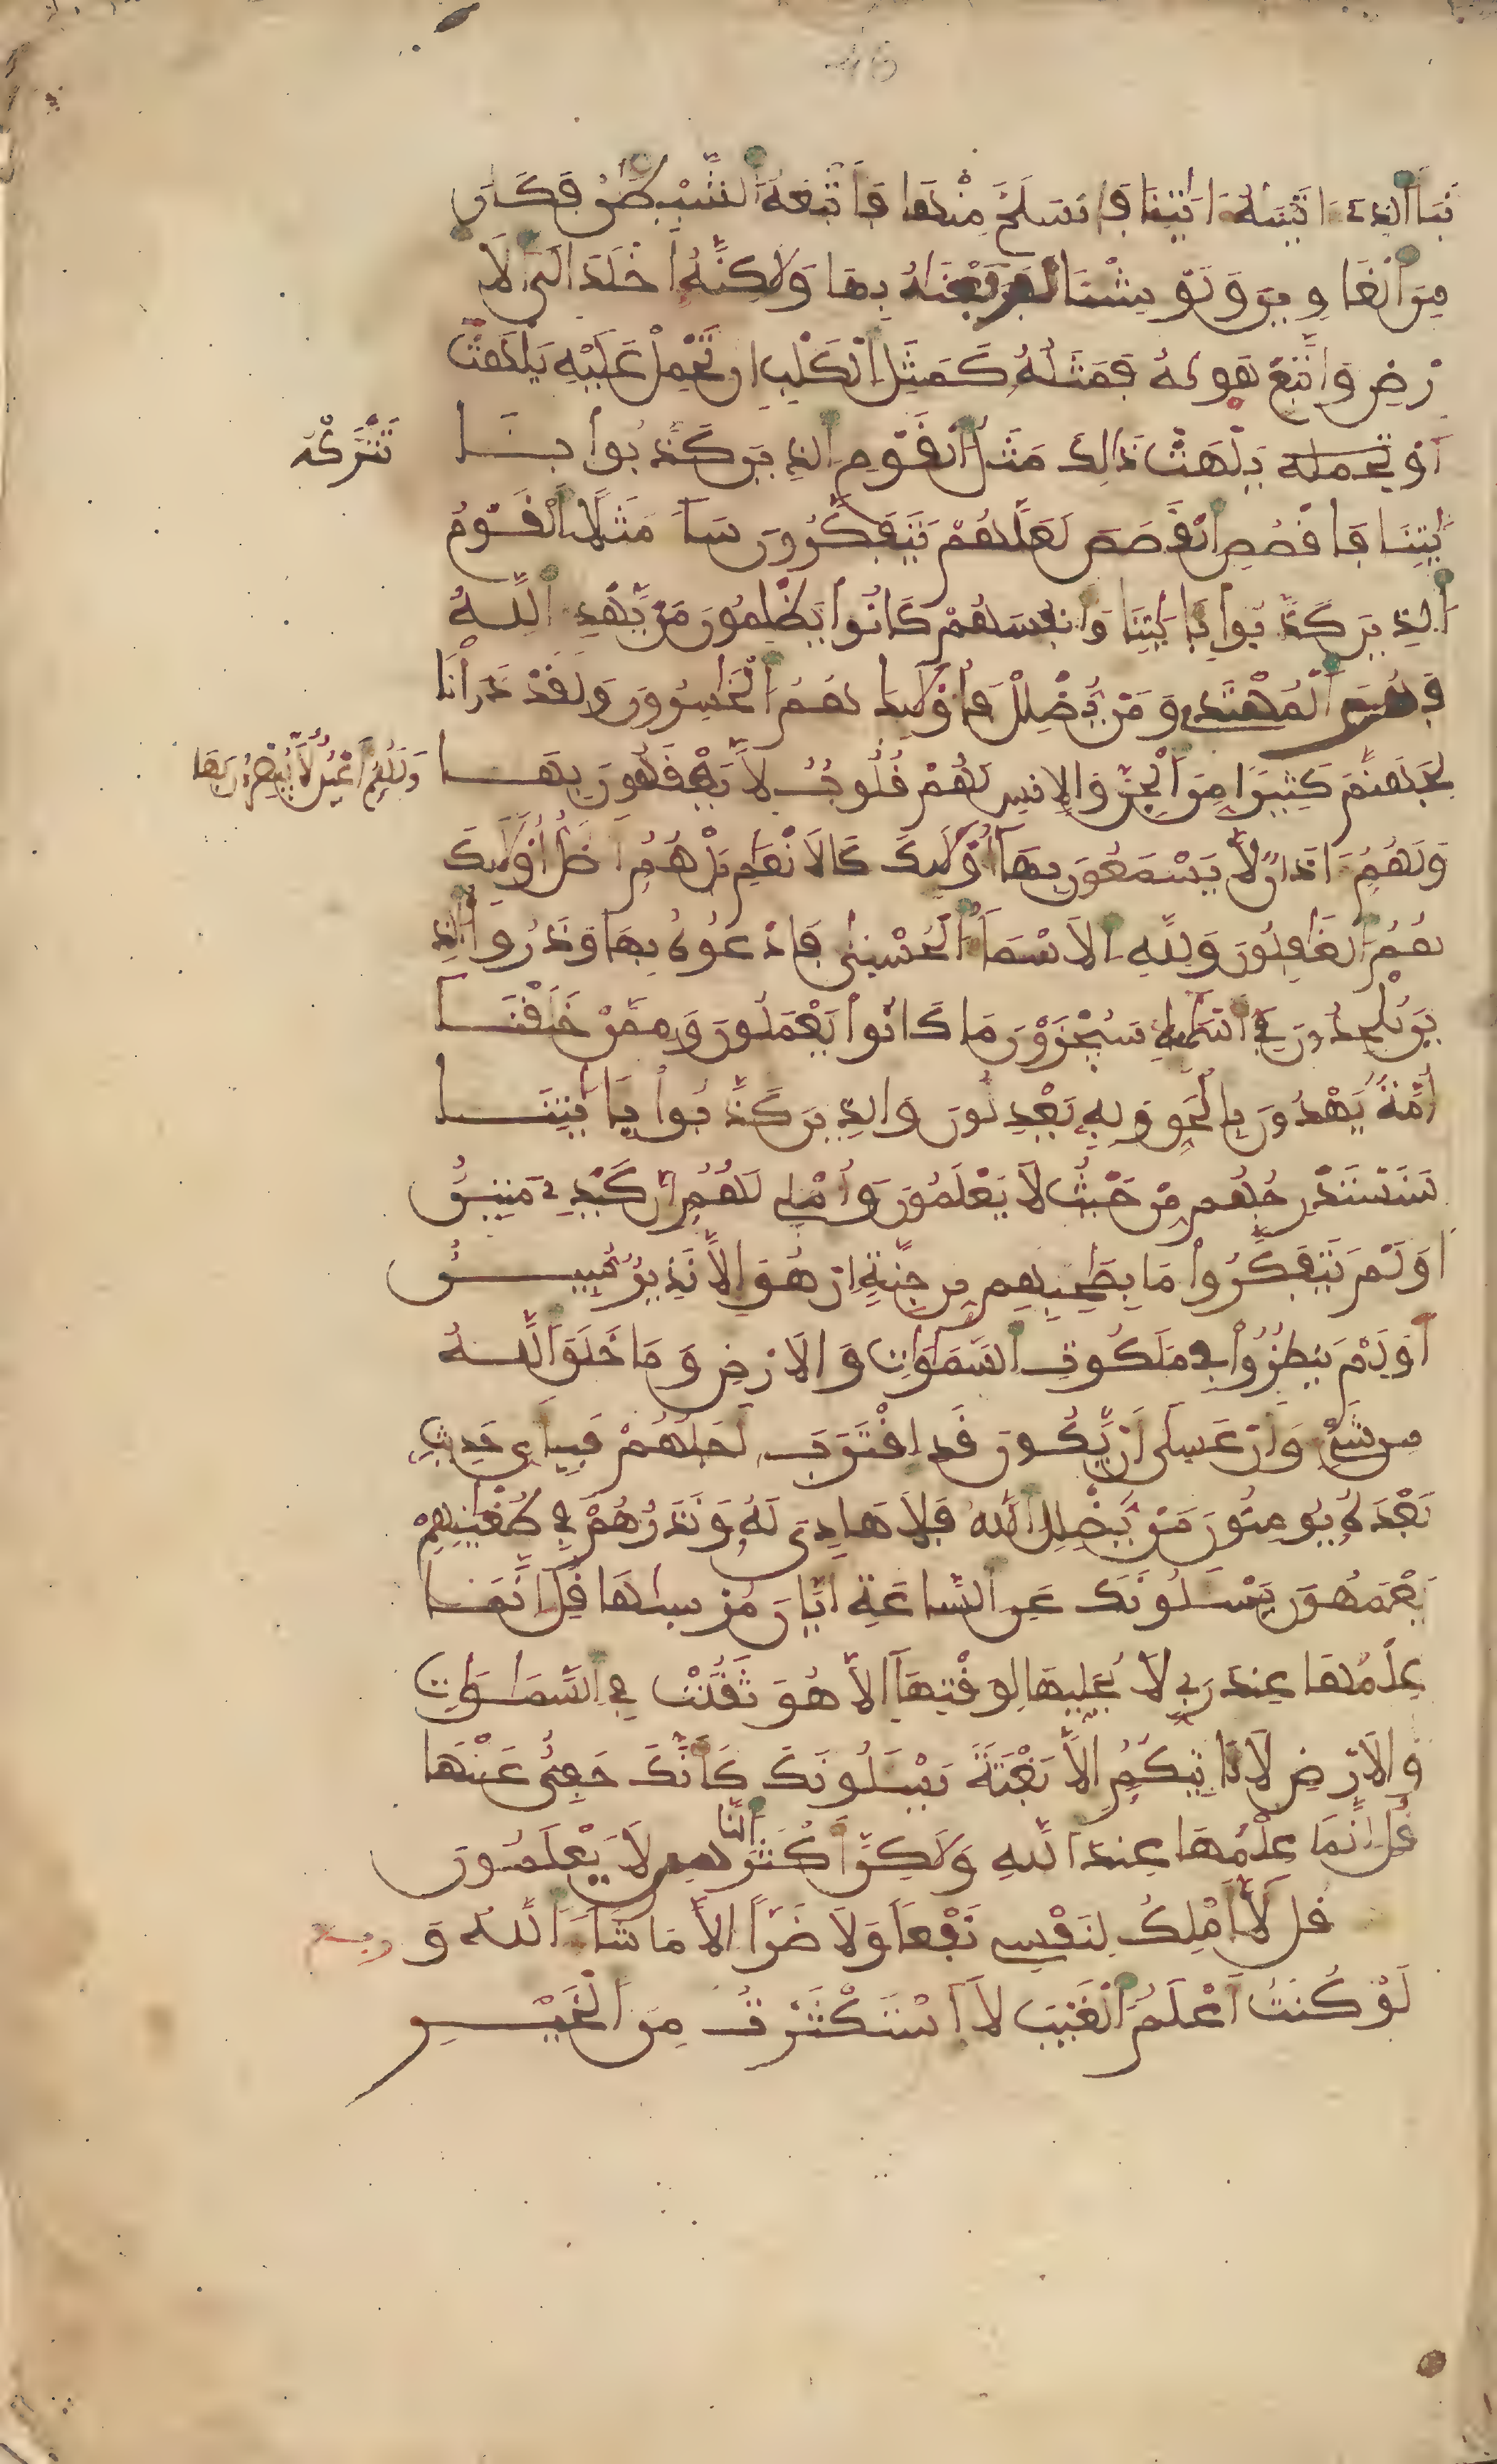 نَبَأَ الَّذِے ءَاتَيْنَٰهُ ءَايَٰتِنَا فَانسَلَخَ مِنْهَا فَأَتْبَعَهُ الشَّيْطَٰنُ فَكَانَ
مِنَ الْغَاوِينَ وَلَوْ شِئْنَا لَرَفَعْنَٰهُ بِهَا وَلَٰكِنَّهُ أَخْلَدَ إِلَى الَا
رْضِ وَاتَّبَعَ هَوٰىهُ فَمَثَلُهُ كَمَثَلِ الْكَلْبِ إِن تَحْمِلْ عَلَيْهِ يَلْهَثْ
أَوْ تحمله يَلْهَث ذَّٰلِكَ مَثَلُ الْقَوْمِ الذِينَ كَذَّبُوا بِـَٔا
تَتْرُكْهُ
يَٰتِنَا فَاقْصُصِ الْقَصَصَ لَعَلَّهُمْ يَتَفَكَّرُونَ سَآءَ مَثَلًا الْقَوْمُ
الذِينَ كَذَّبُوا بِـَٔايَٰتِنَا وَأَنفُسَهُمْ كَانُوا يَظْلِمُونَ مَنْ يَّهْدِ اللَّهُ
فَهُوَ الْمُهْتَدِے وَمَنْ يُّضْلِلْ فَأُوْلَٰئِكَ هُمُ الْخَٰسِرُونَ وَلَقَدْ ذَرَأْنَا
لِجَهَنَّمَ كَثِيرًا مِّنَ الْجِنِّ وَالْإِنسِ لَهُمْ قُلُوبٌ لَّا يَفْقَهُونَ بِهَا
وَلَهُمُ أَعْيُنٌ لَّا يُبْصِرُونَ بِهَا
وَلَهُمُ ءَاذَانٌ لَّا يَسْمَعُونَ بِهَا أُوْلَٰئِكَ كَالَانْعَٰمِ بَلْ هُمُ أَضَلُّ أُوْلَٰئِكَ
هُمُ الْغَٰفِلُونَ وَلِلهِ الَاسْمَآءُ الْحُسْنَىٰ فَادْعُوهُ بِهَا وَذَرُوا الذِ
ينَ يُلْحِدُونَ فِے أَسْمَٰئِهِ سَيُجْزَوْنَ مَا كَانُوا يَعْمَلُونَ وَمِمَّنْ خَلَقْنَا
أُمَّةٌ يَهْدُونَ بِالْحَقِّ وَبِهِ يَعْدِلُونَ وَالذِينَ كَذَّبُوا بِـَٔايَٰتِنَا
سَنَسْتَدْرِجُهُم مِّنْ حَيْثُ لَا يَعْلَمُونَ وَأُمْلِے لَهُمُ إِنَّ كَيْدِے مَتِينٌ
أَوَلَمْ يَتَفَكَّرُوا مَا بِصَٰحِبِهِم مِّن جِنَّةٍ إِنْ هُوَ إِلَّا نَذِيرٌ مُّبِينٌ
أَوَلَمْ يَنظُرُوا فِے مَلَكُوتِ السَّمَٰوَٰتِ وَالَارْضِ وَمَا خَلَقَ اللَّهُ
مِن شَےْءٍ وَأَنْ عَسَىٰ أَنْ يَّكُونَ قَدِ اقْتَرَبَ أَجَلُهُمْ فَبِأَيِّ حَدِيثٍ
بَعْدَهُ يُومِنُونَ مَنْ يُّضْلِلِ اللَّهُ فَلَا هَادِىَ لَهُ وَنَذَرُهُمْ فِے طُغْيَٰنِهِمْ
يَعْمَهُونَ يَسْـَٔلُونَكَ عَنِ السَّاعَةِ أَيَّانَ مُرْسَىٰهَا قُلِ إِنَّمَا
عِلْمُهَا عِندَ رَبِّے لَا يُجَلِّيهَا لِوَقْتِهَا إِلَّا هُوَ ثَقُلَتْ فِے السَّمَٰوَٰتِ
وَالَارْضِ لَا تَاتِيكُمُ إِلَّا بَغْتَةً يَسْـَٔلُونَكَ كَأَنَّكَ حَفِىٌّ عَنْهَا
قُلِ إِنَّمَا عِلْمُهَا عِندَ اللهِ وَلَٰكِنَّ أَكْثَرَ النَّاسِ لَا يَعْلَمُونَ
قُل لَّا أَمْلِكُ لِنَفْسِے نَفْعًا وَلَا ضَرًّا إِلَّا مَا شَآءَ اللَّهُ وَ
ربع
لَوْ كُنتُ أَعْلَمُ الْغَيْبَ لَاسْتَكْثَرْتُ مِنَ الْخَيْرِ